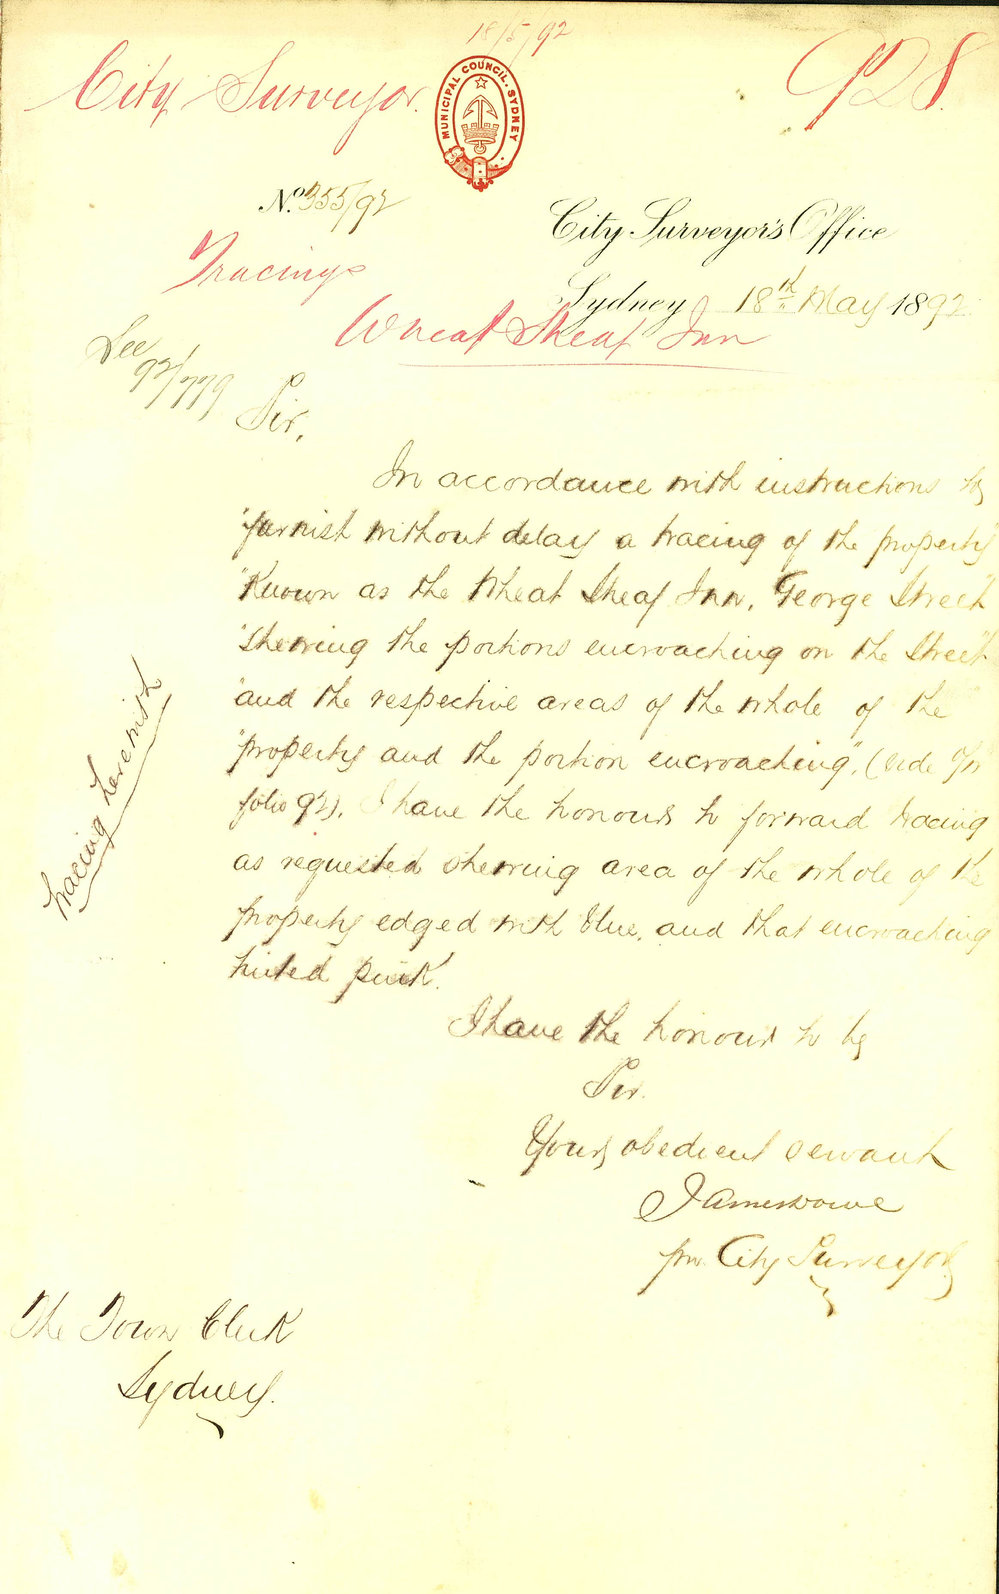 18/5/92
City Surveyor.
928.
MUNICIPAL COUNCIL. SYDNEY
No. 355/92
City Surveyor's Office
Tracings
Sydney 18th May 1892
Wheat Sheaf Inn
See
92/779
Sir,
In accordance with instructions to
"furnish without delay a tracing of the property
"known as the Wheat Sheaf Inn, George Street
"shewing the portions encroaching on the Street
"and the respective areas of the whole of the
"property and the portion encroaching". (vide
folio 92), I have the honour to forward tracing
as requested shewing area of the whole of the
property edged with blue, and that encroaching
tinted pink.
tracing herewith
I have the honour to be
Sir.
Your obedient servant
pro. City Surveyor
The Town Clerk
Sydney.